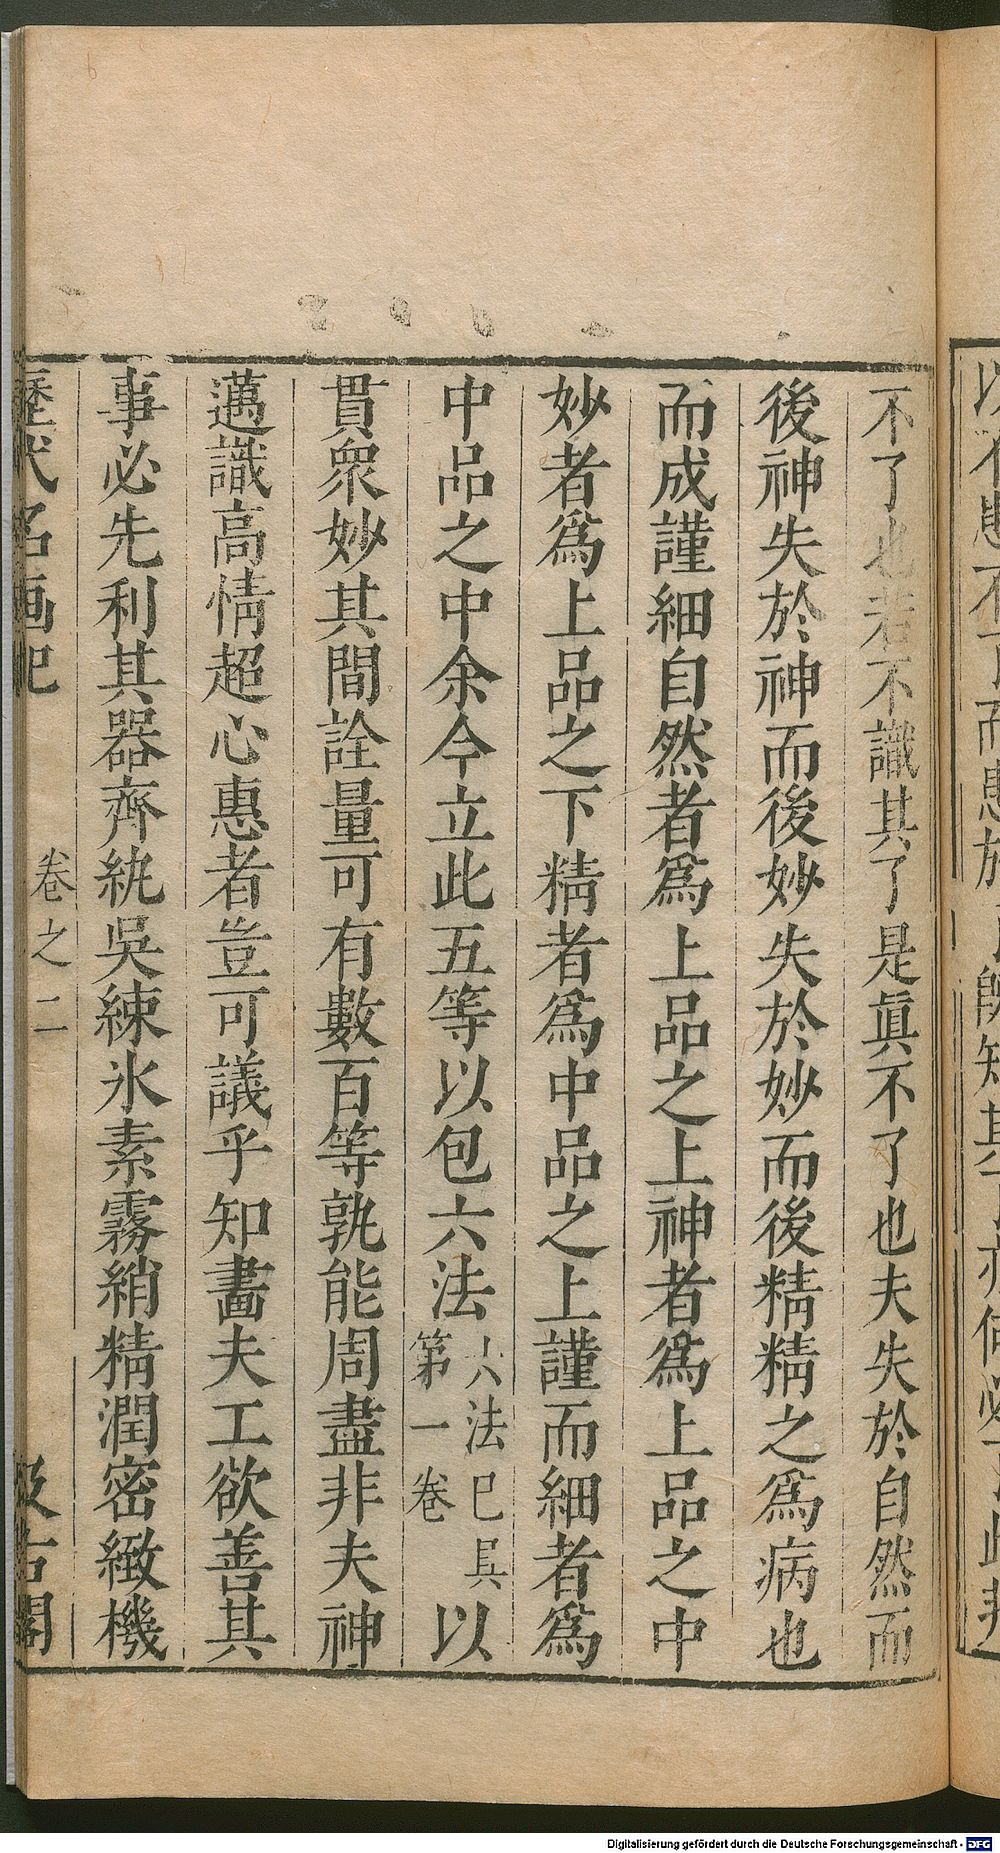 不了也若不識其了是眞不了也夫失於自然而
後神失於神而後妙失於妙而後精精之爲病也
而成謹細自然者爲上品之上神者爲上品之中
妙者爲上品之下精者爲中品之上謹而細者爲
中品之中余今立此五等以包六法六法巳具第一卷以
貫衆妙其間詮量可有數百等孰能周盡非夫神
邁識高情超心惠者豈可議乎知畵夫工欲善其
事必先利其器齊紈吳練氷素霧綃精潤密緻機
歷代名画記 卷之二 汲古閣
Digitalisierung gefördert durch die Deutsche Forschungsgemeinschaft - DFG